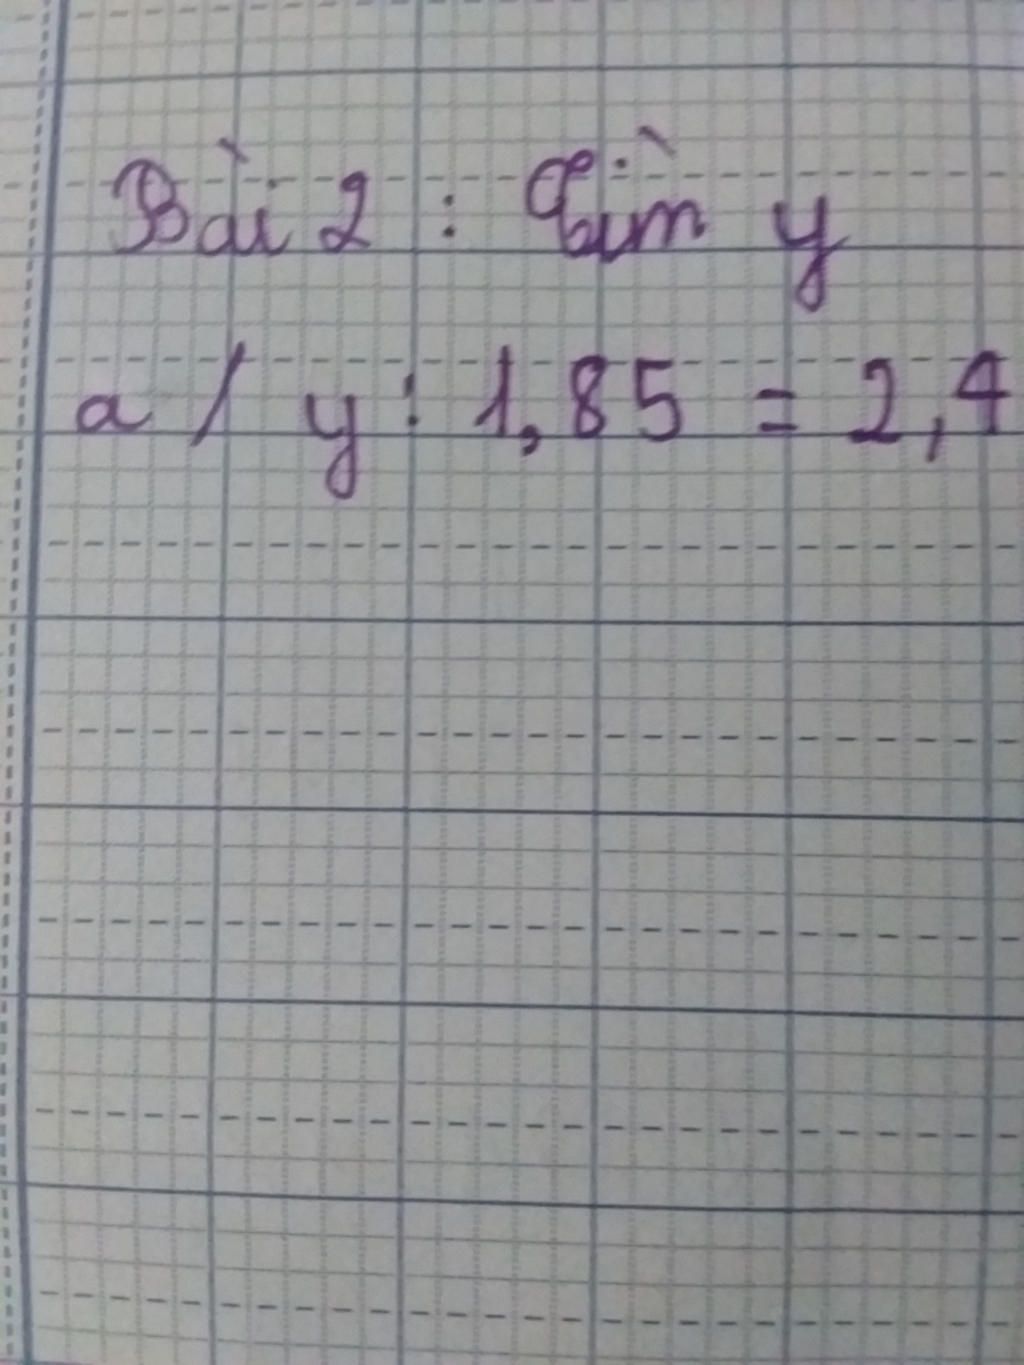 Bài 2 : Tìm y
a / y : 1,85 = 2,4